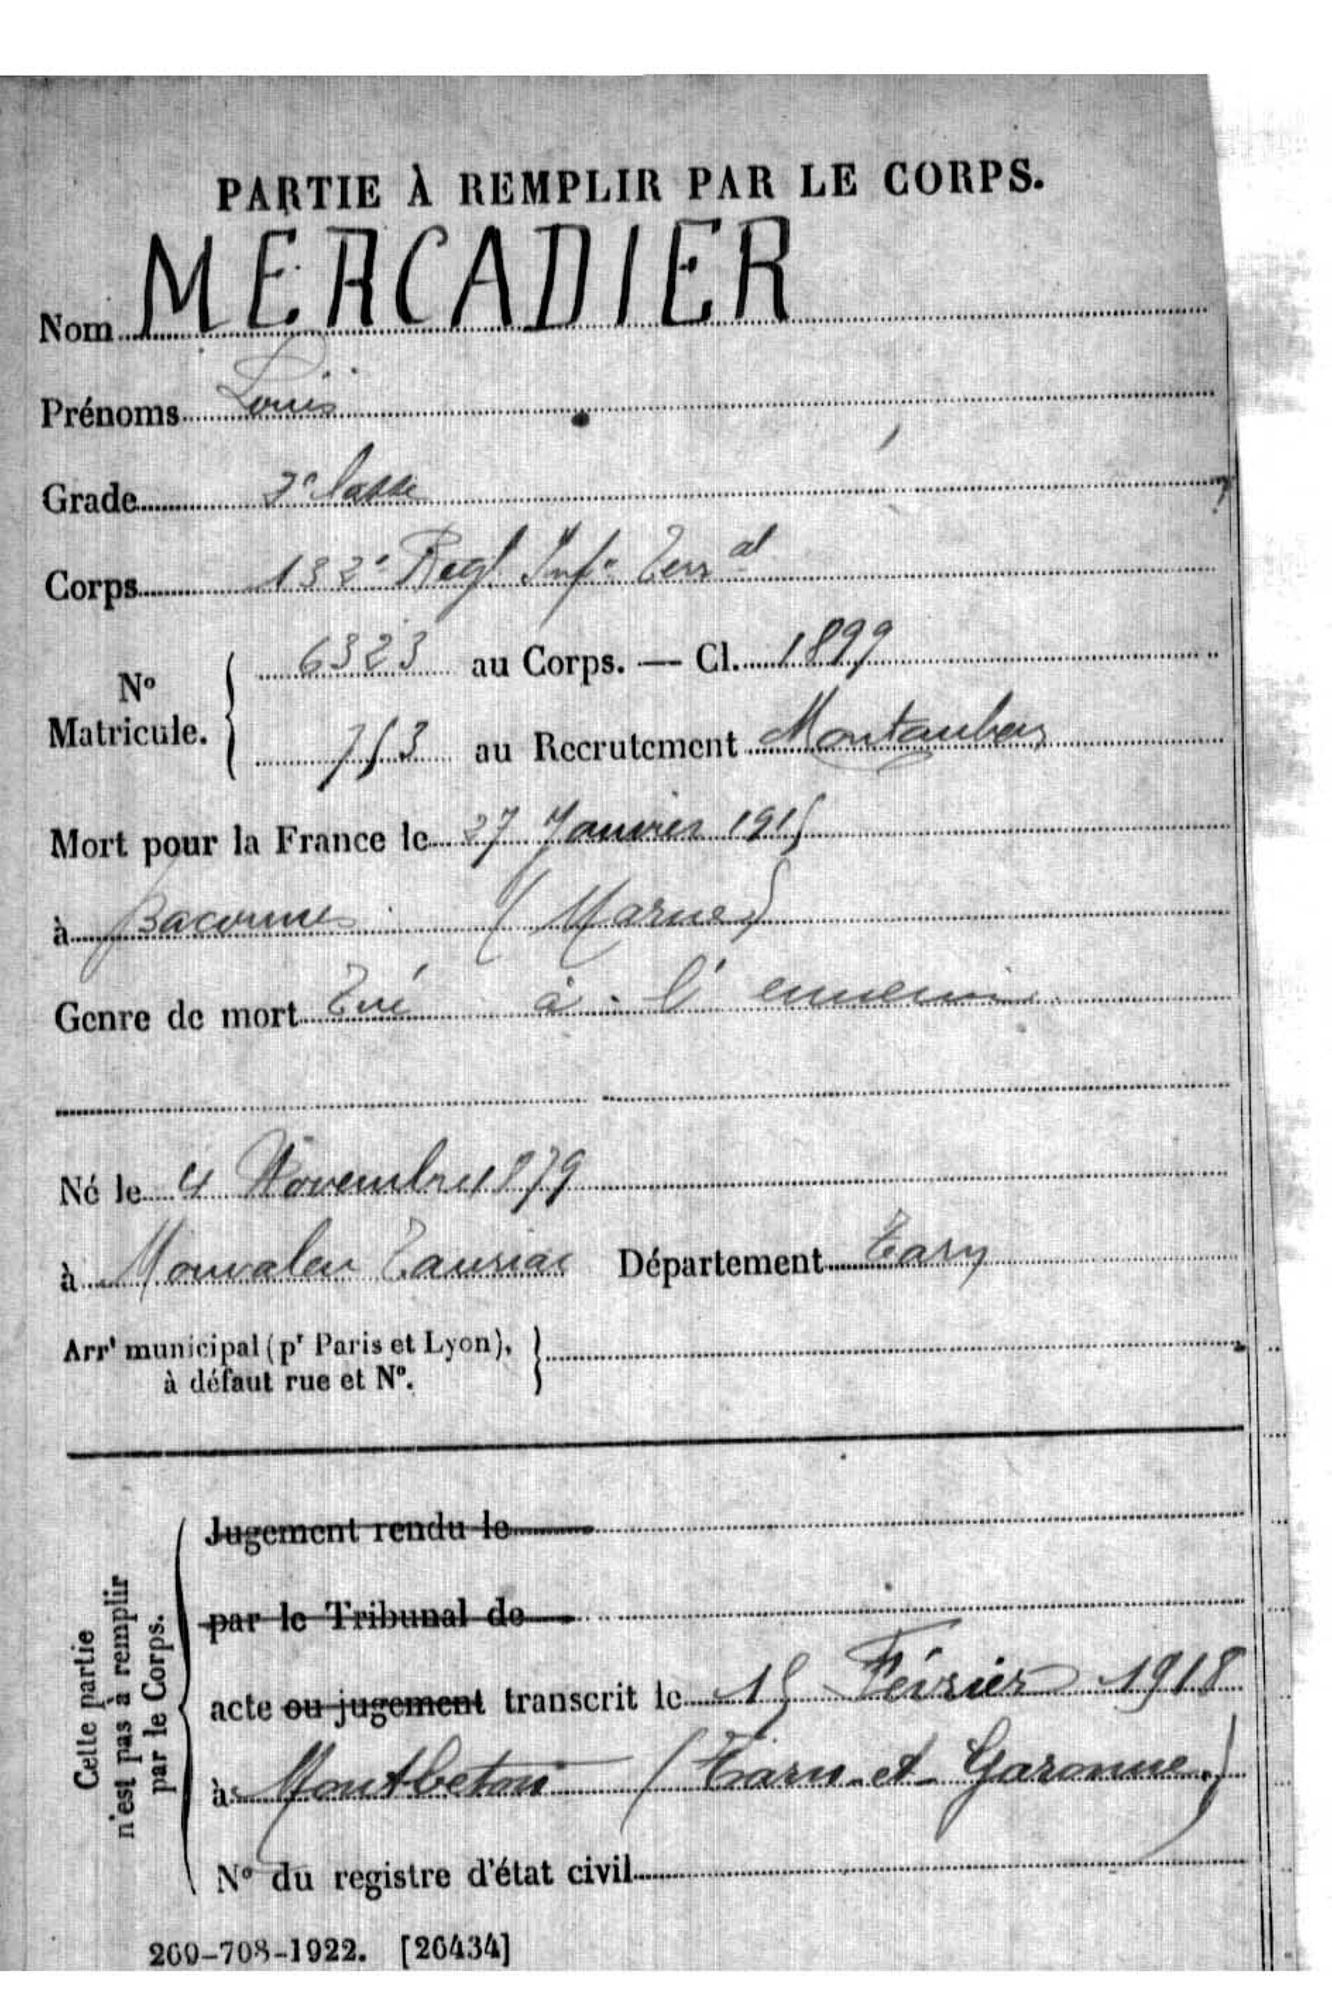 PARTIE À REMPLIR PAR LE CORPS.
Nom MERCADIER
Prénoms Louis
Grade 2e classe
Corps 132e Regt Infie Terral
No Matricule. 6323 au Corps. — Cl. 1899
753 au Recrutement Montauban
Mort pour la France le 27 Janvier 1915
à Baconnes (Marne)
Genre de mort Tué à l'ennemi
Né le 4 Novembre 1879
à Monvalen Tauriac Département Tarn
Arrt municipal (pr Paris et Lyon),
à défaut rue et No.
Cette partie
n'est pas à remplir
par le Corps.
Jugement rendu le
par le Tribunal de
acte ou jugement transcrit le 15 Février 1918
à Montbeton (Tarn-et-Garonne.)
No du registre d'état civil
269-708-1922. [26434]